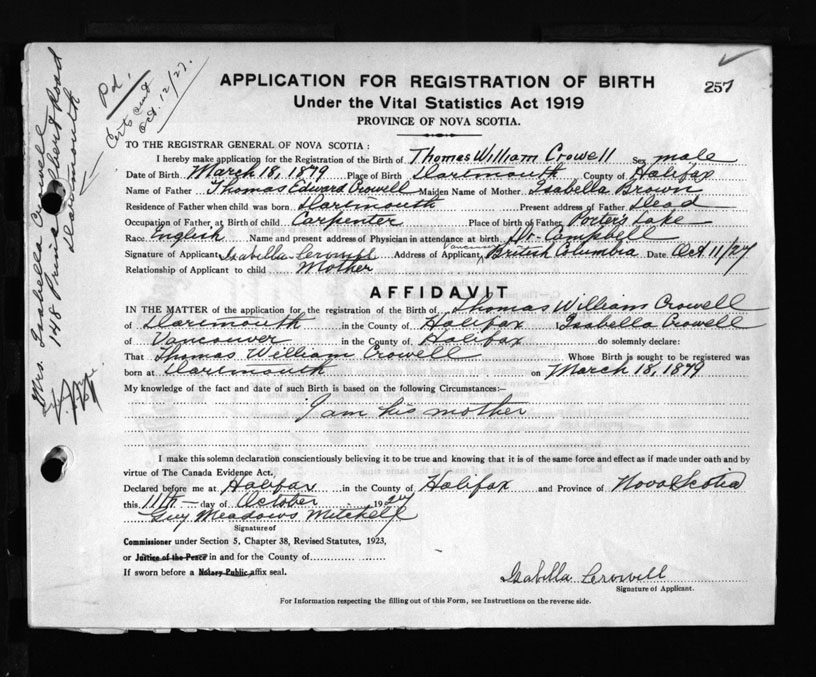 257
Pd.
Certs sent
Oct. 12/27.
Mrs. Isabella Crowell
148 Prince Albert Road
Dartmouth
APPLICATION FOR REGISTRATION OF BIRTH
Under the Vital Statistics Act 1919
PROVINCE OF NOVA SCOTIA.
TO THE REGISTRAR GENERAL OF NOVA SCOTIA:
I hereby make application for the Registration of the Birth of Thomas William Crowell Sex male
Date of Birth March 18, 1879 Place of Birth Dartmouth County of Halifax
Name of Father Thomas Edward Crowell Maiden Name of Mother Isabella Brown
Residence of Father when child was born Dartmouth Present address of Father Dead
Occupation of Father at Birth of child Carpenter Place of birth of Father Porters Lake
Race English Name and present address of Physician in attendance at birth Dr. Campbell
Signature of Applicant Isabella Crowell Address of Applicant, Vancouver British Columbia Date Oct 11/27
Relationship of Applicant to child Mother
AFFIDAVIT
IN THE MATTER of the application for the registration of the Birth of Thomas William Crowell
of Dartmouth in the County of Halifax I Isabella Crowell
of Vancouver in the County of Halifax do solemnly declare:
That Thomas William Crowell Whose Birth is sought to be registered was
born at Dartmouth on March 18, 1879
My knowledge of the fact and date of such Birth is based on the following Circumstances:—
I am his mother
I make this solemn declaration conscientiously believing it to be true and knowing that it is of the same force and effect as if made under oath and by
virtue of The Canada Evidence Act.
Declared before me at Halifax in the County of Halifax and Province of Nova Scotia
this 11th day of October 1927
Guy Meadows Mitchell
Signature of
Commissioner under Section 5, Chapter 38, Revised Statutes, 1923,
or Justice of the Peace in and for the County of
If sworn before a Notary Public affix seal.
Isabella Crowell
Signature of Applicant.
For Information respecting the filling out of this Form, see Instructions on the reverse side.